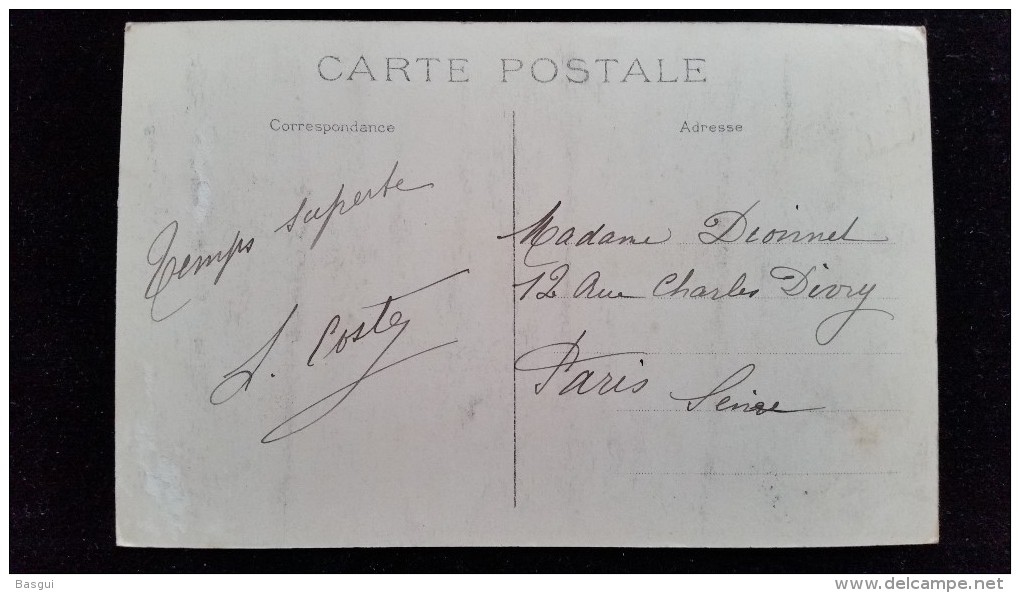 CARTE POSTALE
Correspondance
Adresse
Temps superbe
L. Coste
Madame Dionnet
12 Rue Charles Divry
Paris Seine
Basgui
www.delcampe.net